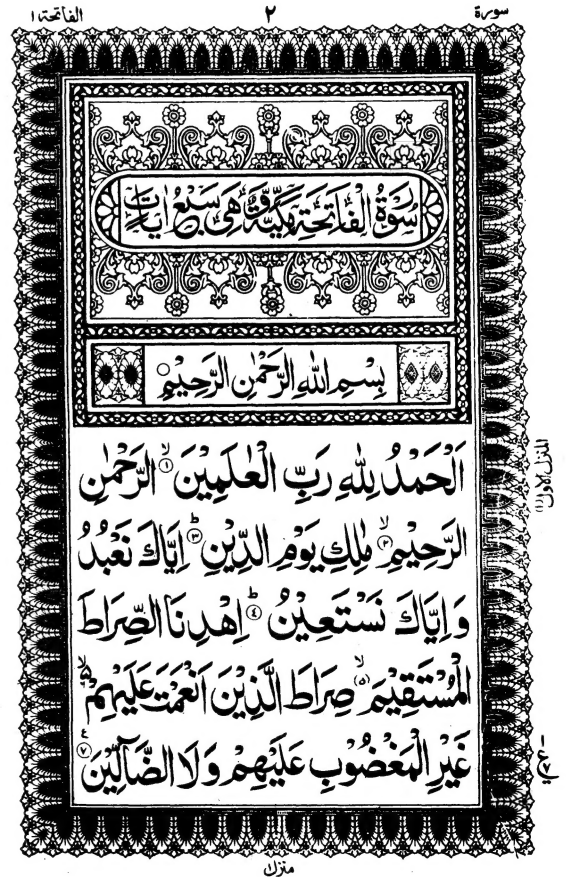 سورة ٢ الفاتحة ١
سُوْرَةُ الْفَاتِحَةِ مَكِّيَّةٌ وَّهِىَ سَبْعُ اٰيَاتٍ
بِسْمِ اللهِ الرَّحْمٰنِ الرَّحِيْمِ○
اَلْحَمْدُ لِلّٰهِ رَبِّ الْعٰلَمِيْنَ ۙ﴿١﴾ الرَّحْمٰنِ
الرَّحِيْمِ ۙ﴿٢﴾ مٰلِكِ يَوْمِ الدِّيْنِ ؕ﴿٣﴾ اِيَّاكَ نَعْبُدُ
وَ اِيَّاكَ نَسْتَعِيْنُ ؕ﴿٤﴾ اِهْدِنَا الصِّرَاطَ
الْمُسْتَقِيْمَ ۙ﴿٥﴾ صِرَاطَ الَّذِيْنَ اَنْعَمْتَ عَلَيْهِمْ ۙ
غَيْرِ الْمَغْضُوْبِ عَلَيْهِمْ وَ لَا الضَّآلِّيْنَ ﴿٧﴾
المنزل الاول (١)
منزل